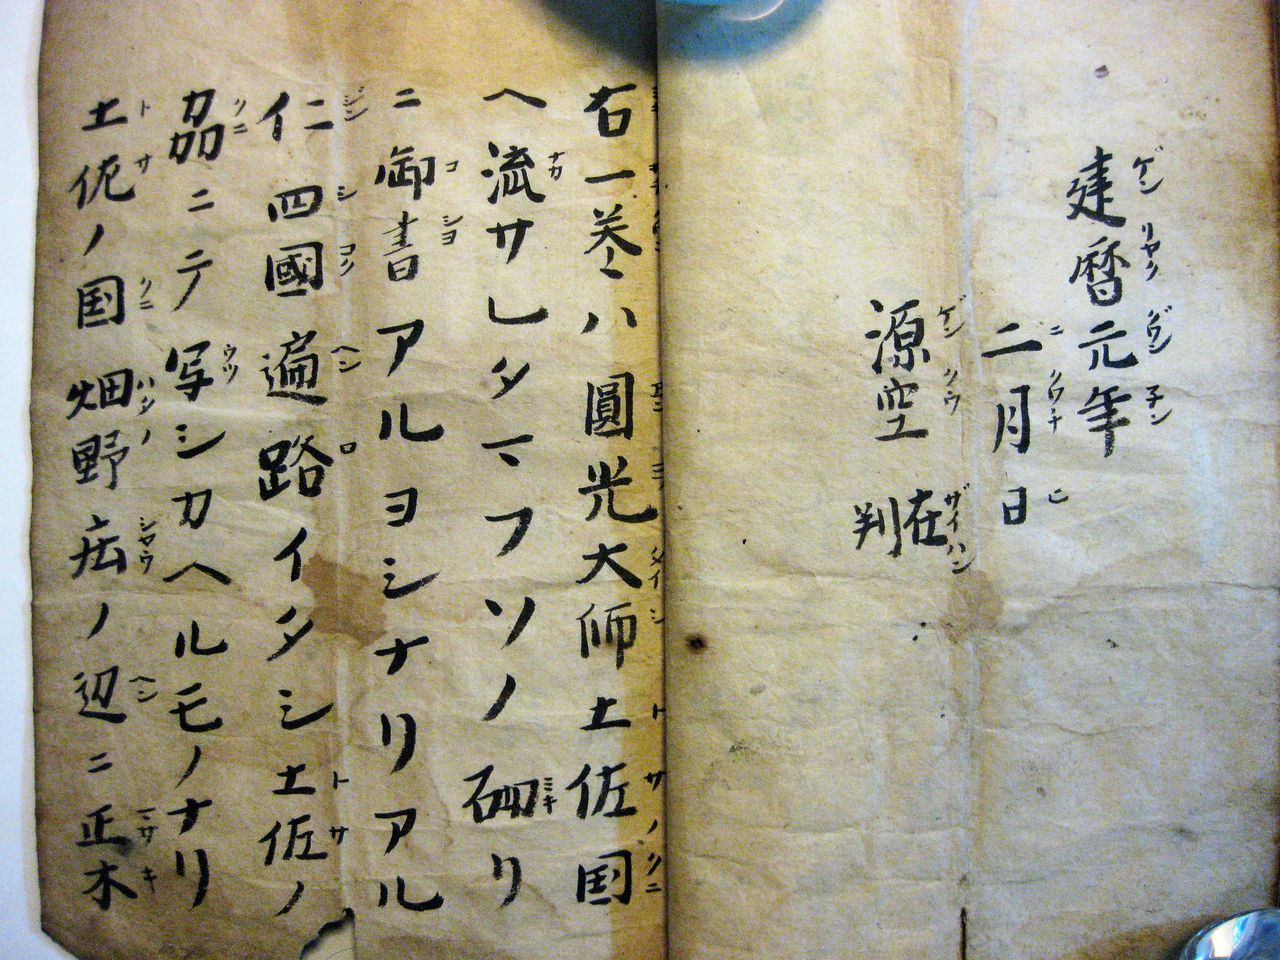 建暦元年
二月日
源空 在判
右一巻ハ圓光大師土佐国
ヘ流サレタマフソノ砌リ
ニ御書アルヨシナリアル
仁四國遍路イタシ土佐ノ
刕ニテ写シカヘルモノナリ
土佐ノ国畑野庄ノ辺ニ正木